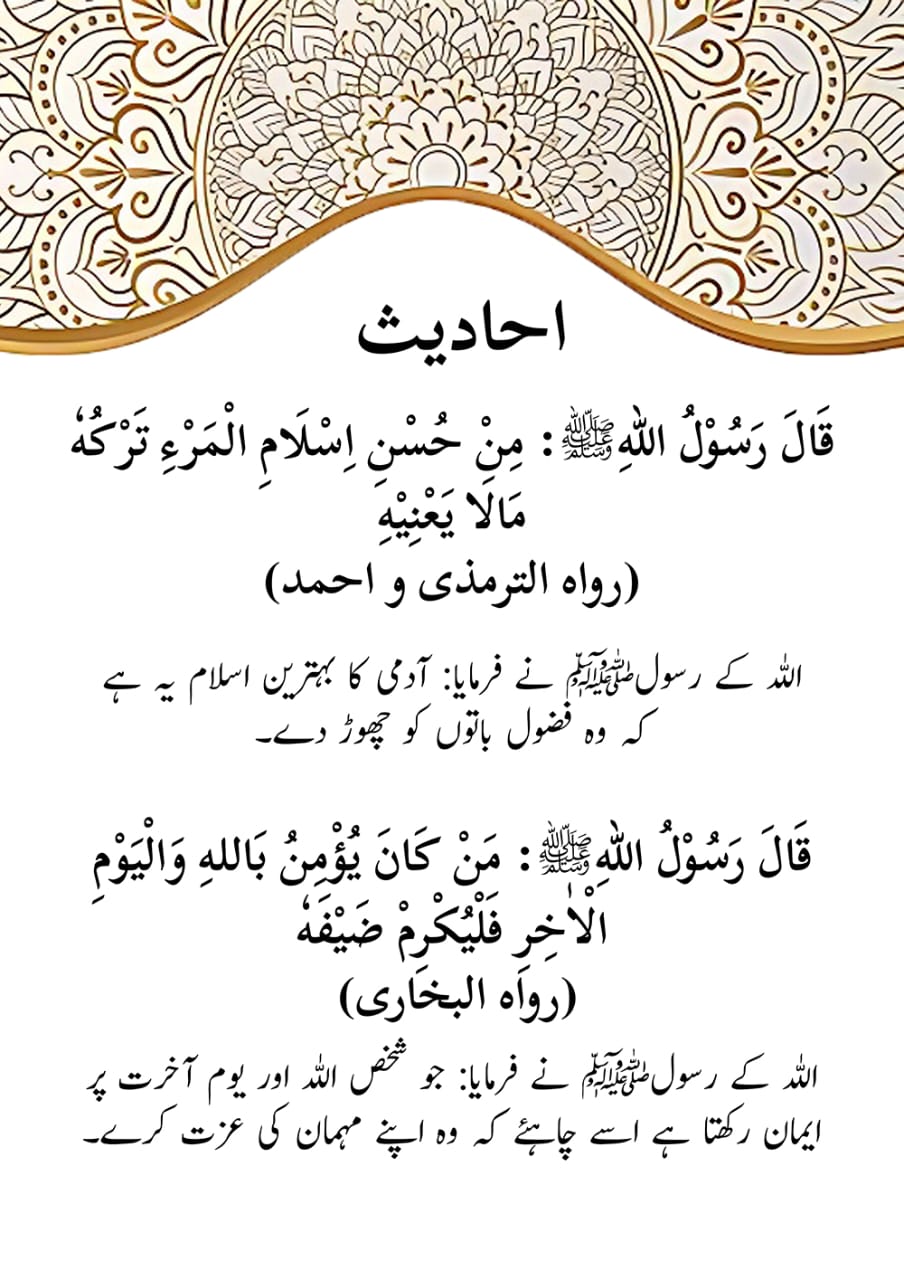 احادیث
قَالَ رَسُوْلُ اللهِﷺ: مِنْ حُسْنِ اِسْلَامِ الْمَرْءِ تَرْكُهٗ
مَالَا يَعْنِيْهِ
(رواه الترمذی و احمد)
اللہ کے رسولﷺ نے فرمایا: آدمی کا بہترین اسلام یہ ہے
کہ وہ فضول باتوں کو چھوڑ دے۔
قَالَ رَسُوْلُ اللهِﷺ: مَنْ كَانَ يُؤْمِنُ بَاللهِ وَالْيَوْمِ
الْاٰخِرِ فَلْيُكْرِمْ ضَيْفَهٗ
(رواه البخاری)
اللہ کے رسولﷺ نے فرمایا: جو شخص اللہ اور یوم آخرت پر
ایمان رکھتا ہے اسے چاہئے کہ وہ اپنے مہمان کی عزت کرے۔